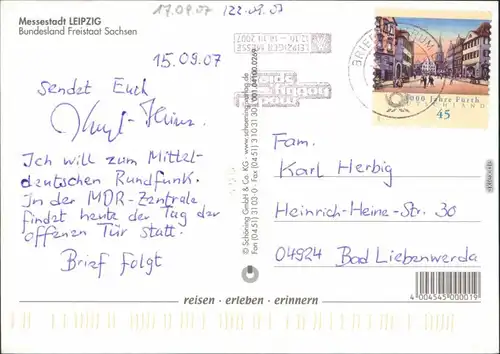 Messestadt LEIPZIG
Bundesland Freistaat Sachsen
17.09.07
122.09.07
15.09.07
sendet Euch
Ich will zum Mittel-
deutschen Rundfunk.
In der MDR-Zentrale
findet heute der Tag der
offenen Tür statt.
Brief folgt
© Schöning GmbH & Co. KG • www.schoening-verlag.de
Fon (0451) 31 03-0 • Fax (0451) 3 10 31 30
LEIPZIGER MESSE
BRIEF
1000 Jahre Fürth
DEUTSCHLAND
45
Fam.
Karl Herbig
Heinrich-Heine-Str. 30
04924 Bad Liebenwerda
4 004545 000019
reisen • erleben • erinnern